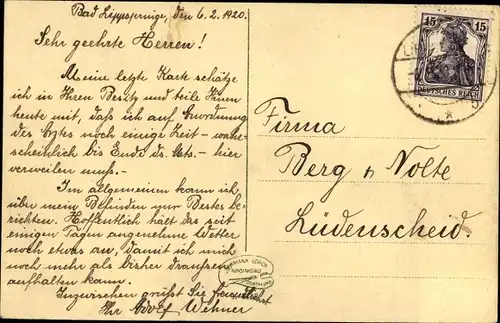 Bad Lippspringe, den 6.2.1920.
Sehr geehrte Herren!
Meine letzte Karte schätze
ich in Ihren Besitz und teile Ihnen
heute mit, dass ich auf Anordnung
des Arztes noch einige Zeit – wahr-
scheinlich bis Ende ds. Mts. – hier
verweilen muss. –
Im allgemeinen kann ich
über mein Befinden nur Bestes be-
richten. Hoffentlich hält das seit
einigen Tagen angenehme Wetter
noch etwas an, damit ich mich
noch mehr als bisher draussen
aufhalten kann.
Inzwischen grüßt Sie freundlichst
Ihr Adolf Wehner
15 15
DEUTSCHES REICH
Firma
Berg & Nolte
Lüdenscheid.